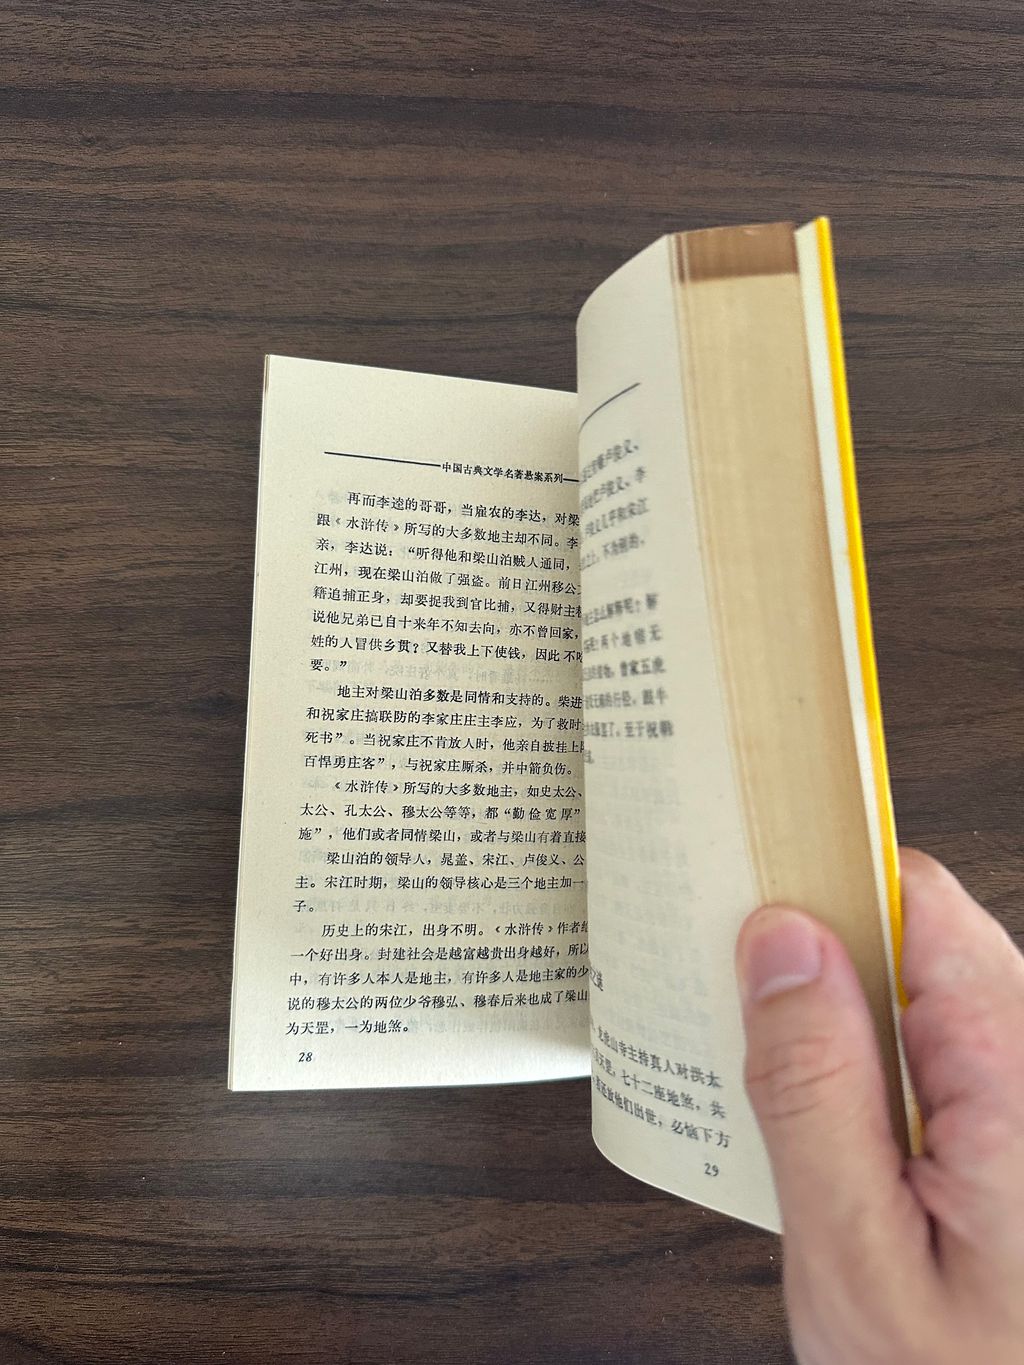 中国古典文学名著悬案系列
再而李逵的哥哥，当雇农的李达，对梁
跟《水浒传》所写的大多数地主却不同。李
亲，李达说：“听得他和梁山泊贼人通同，
江州，现在梁山泊做了强盗。前日江州移公
籍追捕正身，却要捉我到官比捕，又得财主
说他兄弟已自十来年不知去向，亦不曾回家，
姓的人冒供乡贯？又替我上下使钱，因此不
要。”
地主对梁山泊多数是同情和支持的。柴进
和祝家庄搞联防的李家庄庄主李应，为了救时
死书”。当祝家庄不肯放人时，他亲自披挂上
百悍勇庄客”，与祝家庄厮杀，并中箭负伤。
《水浒传》所写的大多数地主，如史太公、
太公、孔太公、穆太公等等，都“勤俭宽厚”
施”，他们或者同情梁山，或者与梁山有着直接
梁山泊的领导人，晁盖、宋江、卢俊义、公
主。宋江时期，梁山的领导核心是三个地主加一
子。
历史上的宋江，出身不明。《水浒传》作者给
一个好出身。封建社会是越富越贵出身越好，所以
中，有许多人本人是地主，有许多人是地主家的少
说的穆太公的两位少爷穆弘、穆春后来也成了梁山
为天罡，一为地煞。
28
卢俊义、
卢俊义、李
俊义几乎和宋江
之上，不为别的，
怎么解释呢？解
两个地错无
曾家五虎
跟牛
至于祝朝
之谜
龙虎山寺主持真人对洪太
天罡，七十二座地煞，共
还放他们出世，必恼下方
29